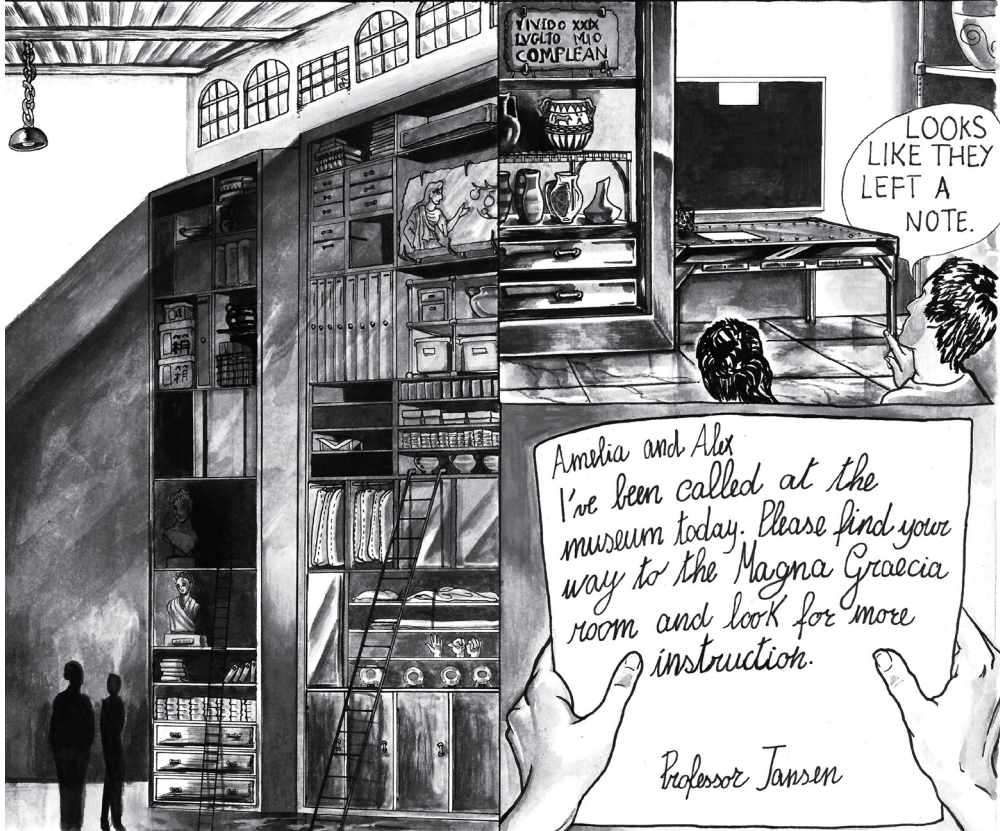 箱
箱
VIVIDO XXIX
LVGLIO MIO
COMPLEAN
LOOKS
LIKE THEY
LEFT A
NOTE.
Amelia and Alex
I've been called at the
museum today. Please find your
way to the Magna Graecia
room and look for more
instruction.
Professor Jansen